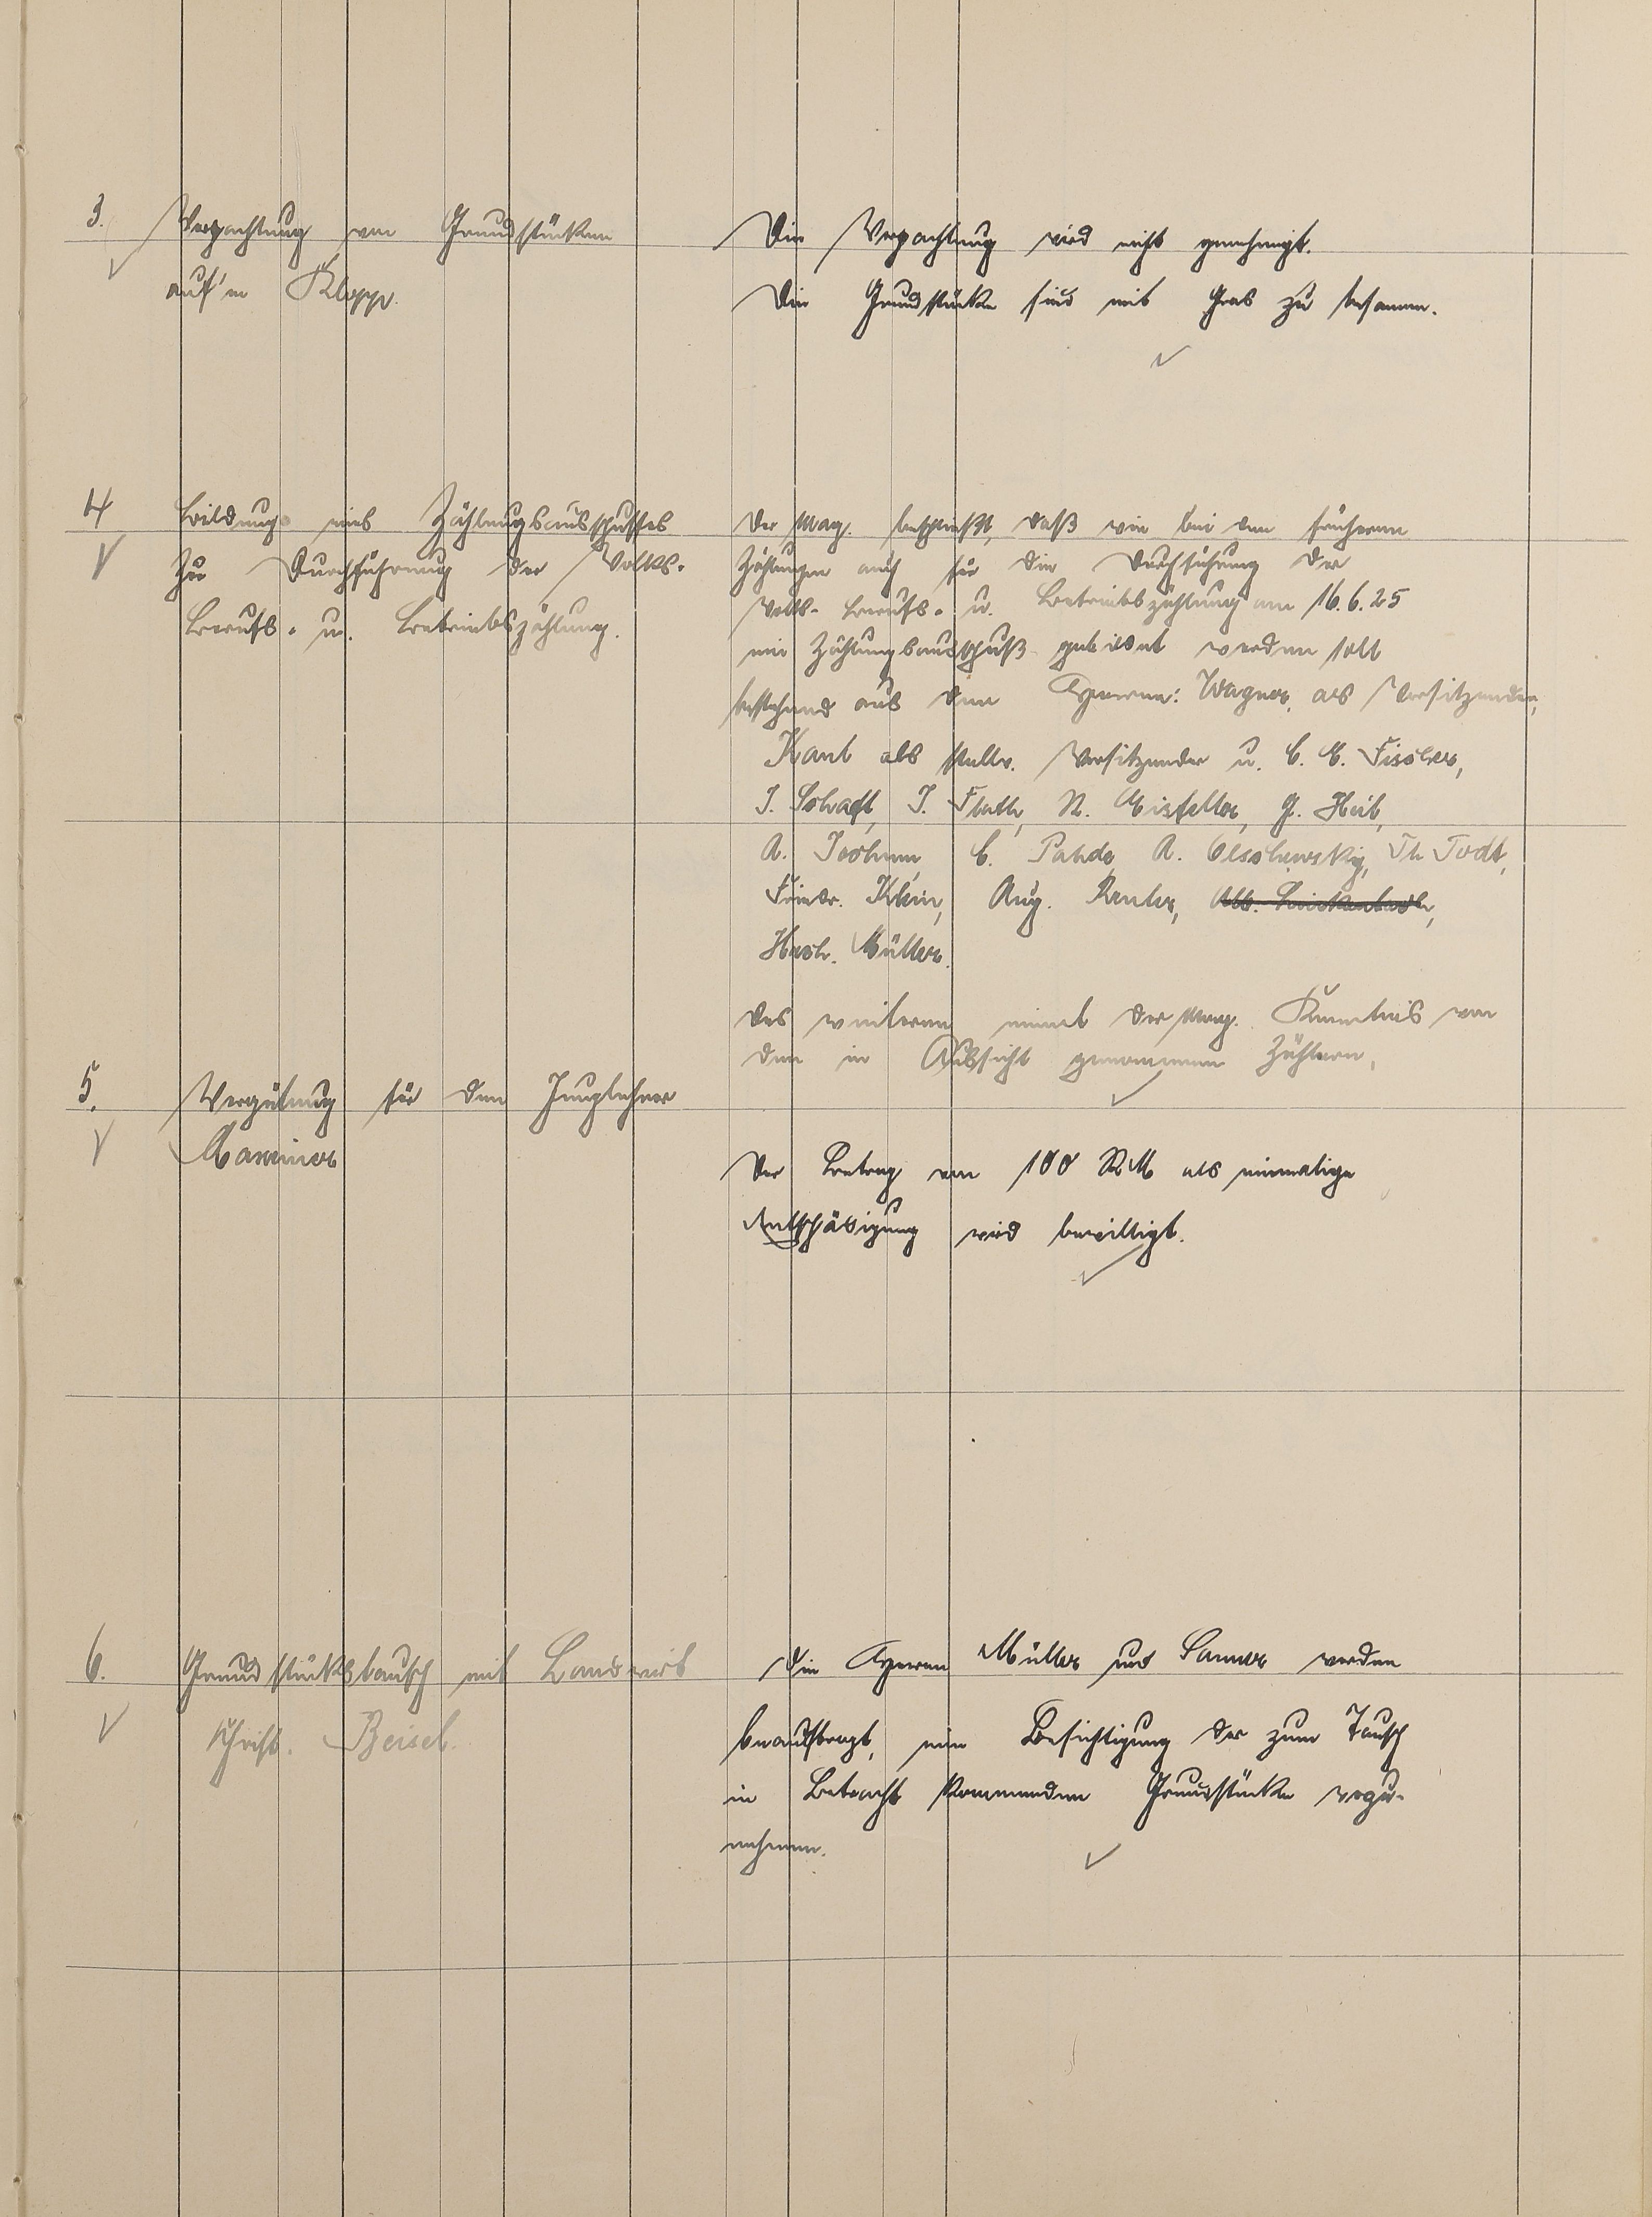 3. Verpachtung von Grundstücken
auf'm Klopp.
Die Verpachtung wird nicht genehmigt.
Die Grundstücke sind mit Gras zu besamen.
4 Bildung eines Zählungsausschusses
zur Durchführung der Volks-
Berufs- u. Betriebszählung.
Der Mag. beschließt, daß wie bei den früheren
Zählungen auch für die Durchführung der
Volks- Berufs- u. Betriebszählung am 16.6.25
ein Zählungsausschuß gebildet werden soll
bestehend aus den Herren: Wagner, als Vorsitzender,
Kant als stellv. Vorsitzender u. C. C. Fischer,
J. Schaft, J. Flath, N. Misfeller, G. Heib,
A. Jochum, C. Pahde, A. Olschewsky, Th Todt,
Friedr. Klein, Aug. Reuter,
Hch. Müller.
Des weiteren nimmt der Mag. Kenntnis von
den in Aussicht genommenen Zählern.
5. Vergütung für den Junglehrer
Der Betrag von 100 RM als einmalige
Entschädigung wird bewilligt.
6. Grundstückstausch mit Landwirt
Christ. Beisel.
Die Herren Müller und Sanner werden
beauftragt, eine Besichtigung der zum Tausch
in Betracht kommenden Grundstücke vorzu-
nehmen.